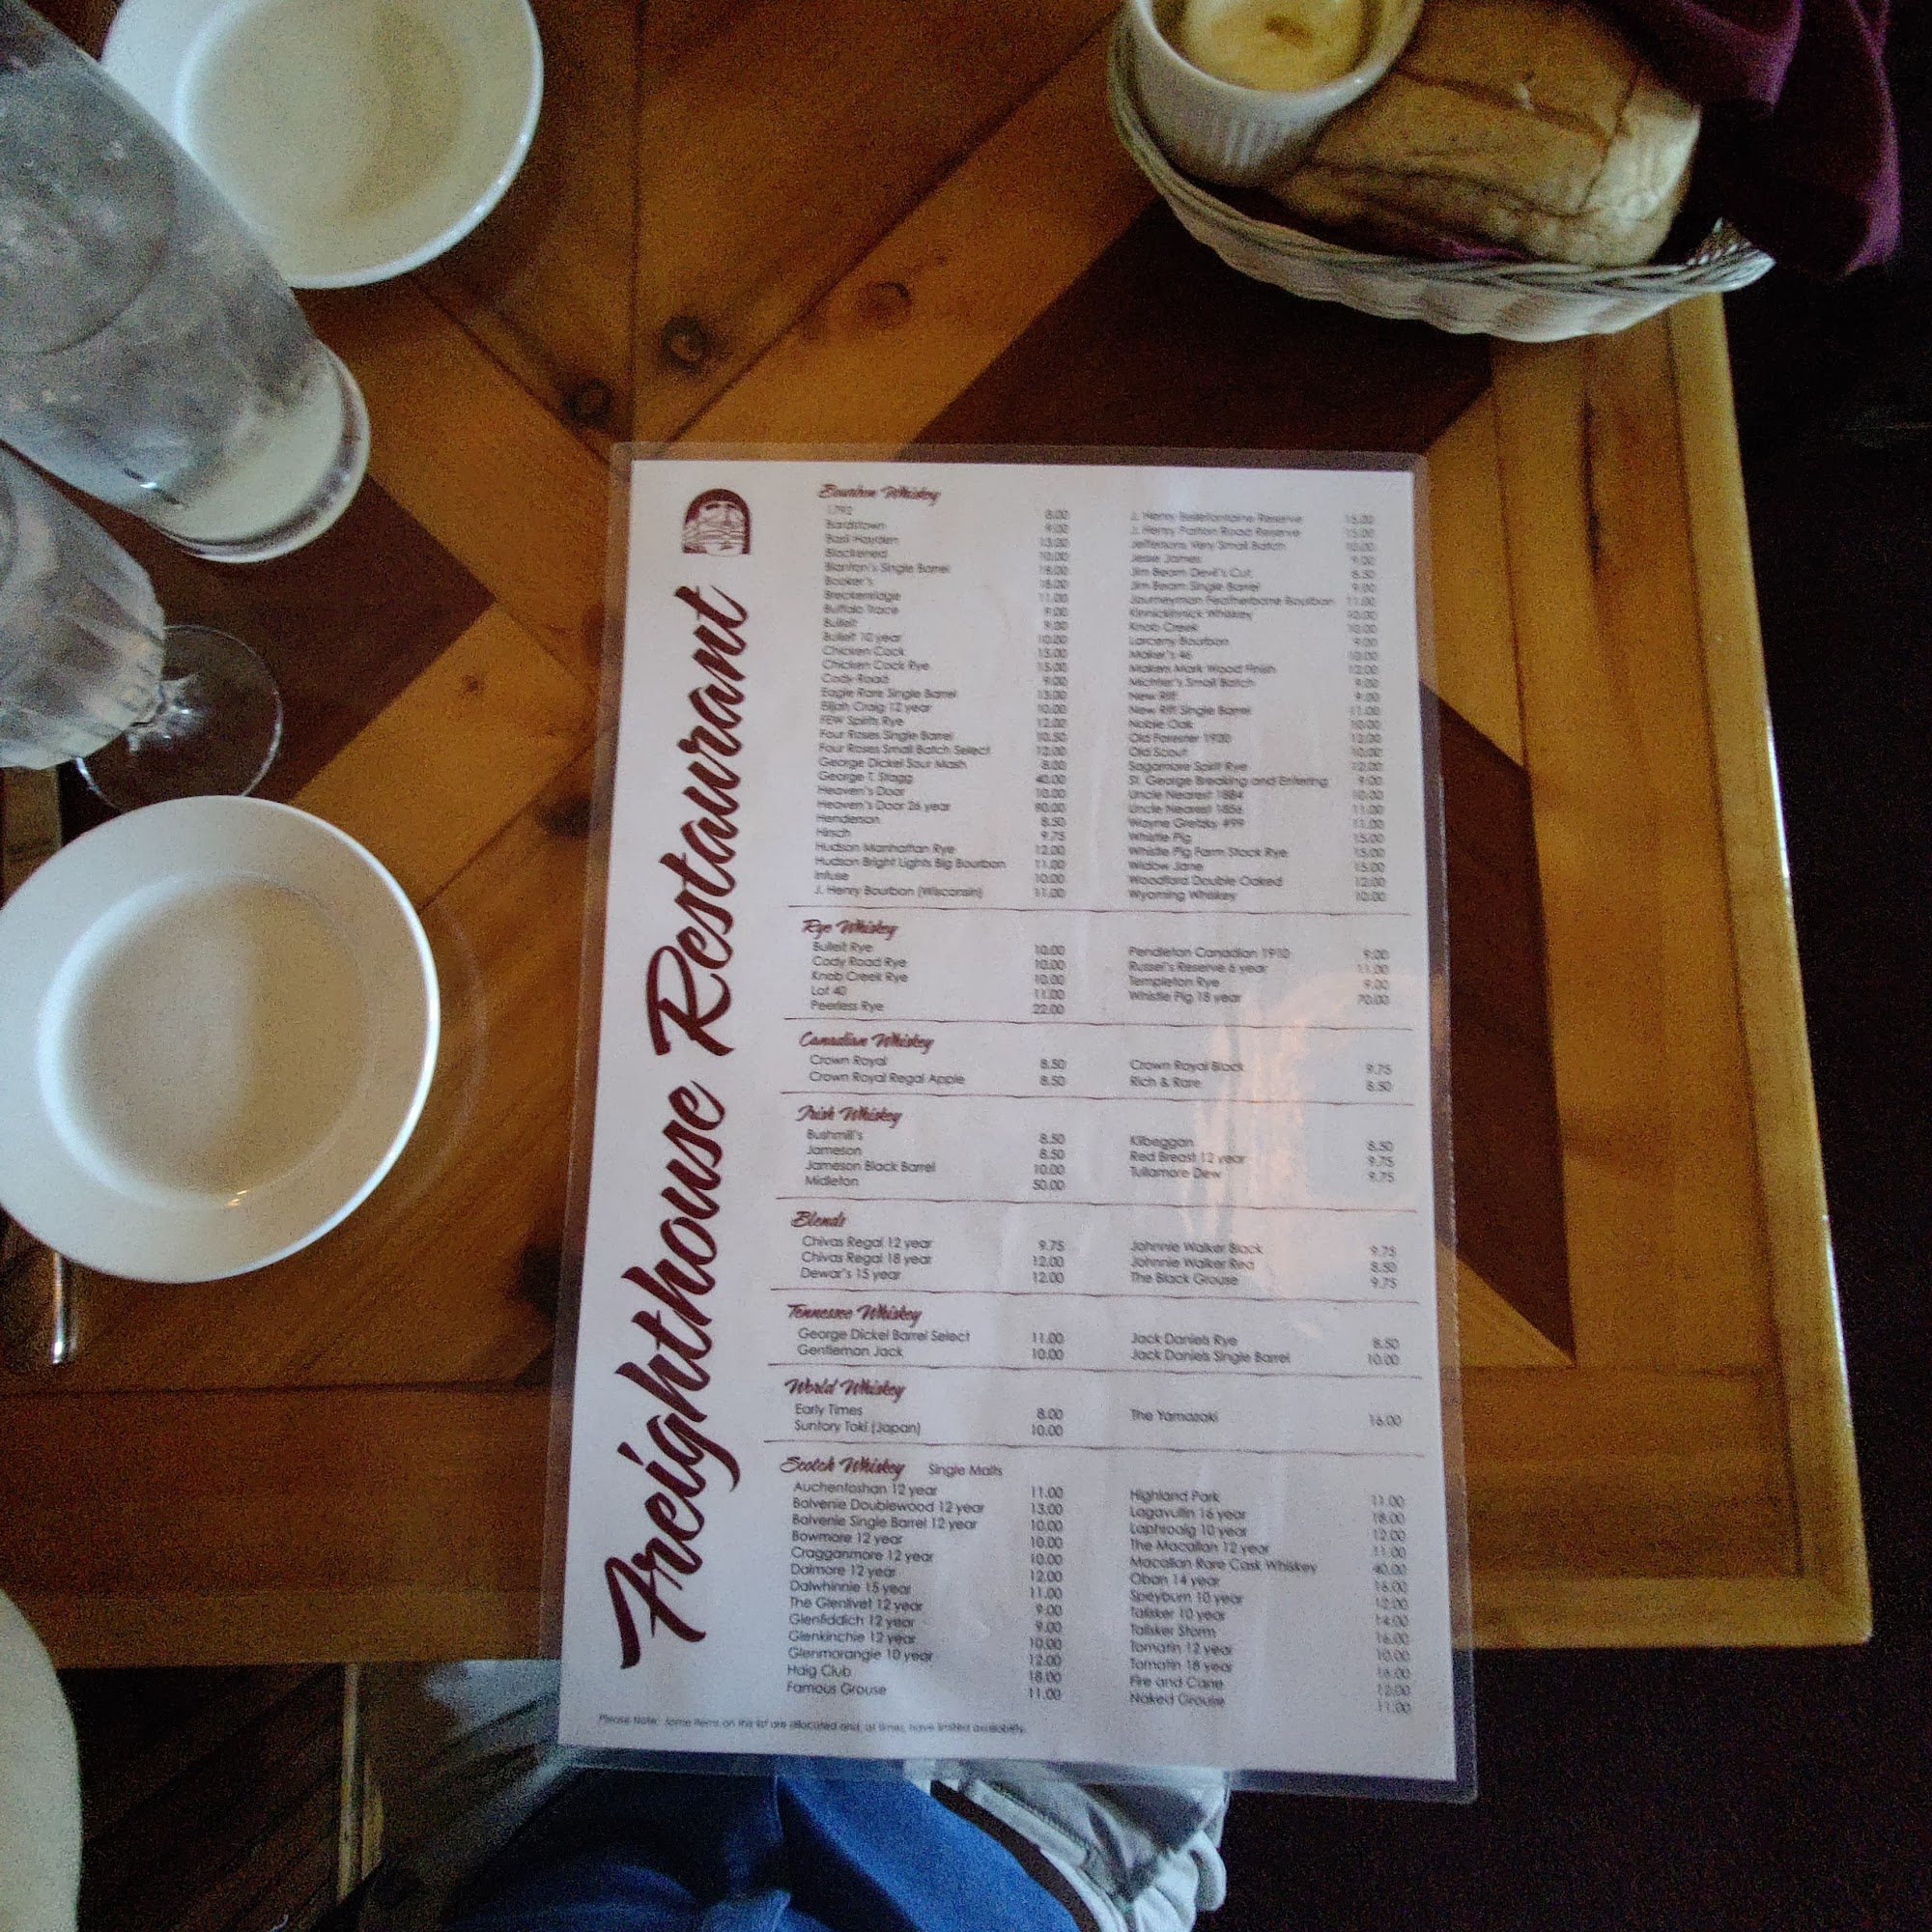 Freighthouse Restaurant
Bourbon Whiskey
1792 8.00
Bardstown 9.00
Basil Hayden 13.00
Blackened 10.00
Blanton's Single Barrel 18.00
Booker's 18.00
Breckenridge 11.00
Buffalo Trace 9.00
Bulleit 9.00
Bulleit 10 year 10.00
Chicken Cock 15.00
Chicken Cock Rye 15.00
Cody Road 9.00
Eagle Rare Single Barrel 13.00
Elijah Craig 12 year 10.00
FEW Spirits Rye 12.00
Four Roses Single Barrel 10.50
Four Roses Small Batch Select 12.00
George Dickel Sour Mash 8.00
George T. Stagg 40.00
Heaven's Door 10.00
Heaven's Door 26 year 90.00
Henderson 8.50
Hirsch 9.75
Hudson Manhattan Rye 12.00
Hudson Bright Lights Big Bourbon 11.00
Infuse 10.00
J. Henry Bourbon (Wisconsin) 11.00
J. Henry Bellefontaine Reserve 15.00
J. Henry Patton Road Reserve 15.00
Jeffersons Very Small Batch 10.00
Jesse James 9.00
Jim Beam Devil's Cut 8.50
Jim Beam Single Barrel 9.00
Journeyman Featherbone Bourbon 11.00
Kinnickinnick Whiskey 10.00
Knob Creek 10.00
Larceny Bourbon 9.00
Maker's 46 10.00
Makers Mark Wood Finish 12.00
Michter's Small Batch 9.00
New Riff 9.00
New Riff Single Barrel 11.00
Noble Oak 10.00
Old Forester 1920 12.00
Old Scout 10.00
Sagamore Spirit Rye 12.00
St. George Breaking and Entering 9.00
Uncle Nearest 1884 10.00
Uncle Nearest 1856 11.00
Wayne Gretzky #99 11.00
Whistle Pig 15.00
Whistle Pig Farm Stock Rye 15.00
Widow Jane 15.00
Woodford Double Oaked 12.00
Wyoming Whiskey 10.00
Rye Whiskey
Bulleit Rye 10.00
Cody Road Rye 10.00
Knob Creek Rye 10.00
Lot 40 11.00
Peerless Rye 22.00
Pendleton Canadian 1910 9.00
Russel's Reserve 6 year 11.00
Templeton Rye 9.00
Whistle Pig 18 year 70.00
Canadian Whiskey
Crown Royal 8.50
Crown Royal Regal Apple 8.50
Crown Royal Black 9.75
Rich & Rare 8.50
Irish Whiskey
Bushmill's 8.50
Jameson 8.50
Jameson Black Barrel 10.00
Midleton 50.00
Kilbeggan 8.50
Red Breast 12 year 9.75
Tullamore Dew 9.75
Blends
Chivas Regal 12 year 9.75
Chivas Regal 18 year 12.00
Dewar's 15 year 12.00
Johnnie Walker Black 9.75
Johnnie Walker Red 8.50
The Black Grouse 9.75
Tennessee Whiskey
George Dickel Barrel Select 11.00
Gentleman Jack 10.00
Jack Daniels Rye 8.50
Jack Daniels Single Barrel 10.00
World Whiskey
Early Times 8.00
Suntory Toki (Japan) 10.00
The Yamazaki 16.00
Scotch Whiskey Single Malts
Auchentoshan 12 year 11.00
Balvenie Doublewood 12 year 13.00
Balvenie Single Barrel 12 year 10.00
Bowmore 12 year 10.00
Cragganmore 12 year 10.00
Dalmore 12 year 12.00
Dalwhinnie 15 year 11.00
The Glenlivet 12 year 9.00
Glenfiddich 12 year 9.00
Glenkinchie 12 year 10.00
Glenmorangie 10 year 12.00
Haig Club 18.00
Famous Grouse 11.00
Highland Park 11.00
Lagavullin 16 year 18.00
Laphroaig 10 year 12.00
The Macallan 12 year 11.00
Macallan Rare Cask Whiskey 40.00
Oban 14 year 16.00
Speyburn 10 year 12.00
Talisker 10 year 14.00
Talisker Storm 16.00
Tomatin 12 year 10.00
Tomatin 18 year 16.00
Fire and Cane 12.00
Naked Grouse 11.00
Please Note: some items on this list are allocated and, at times, have limited availability.